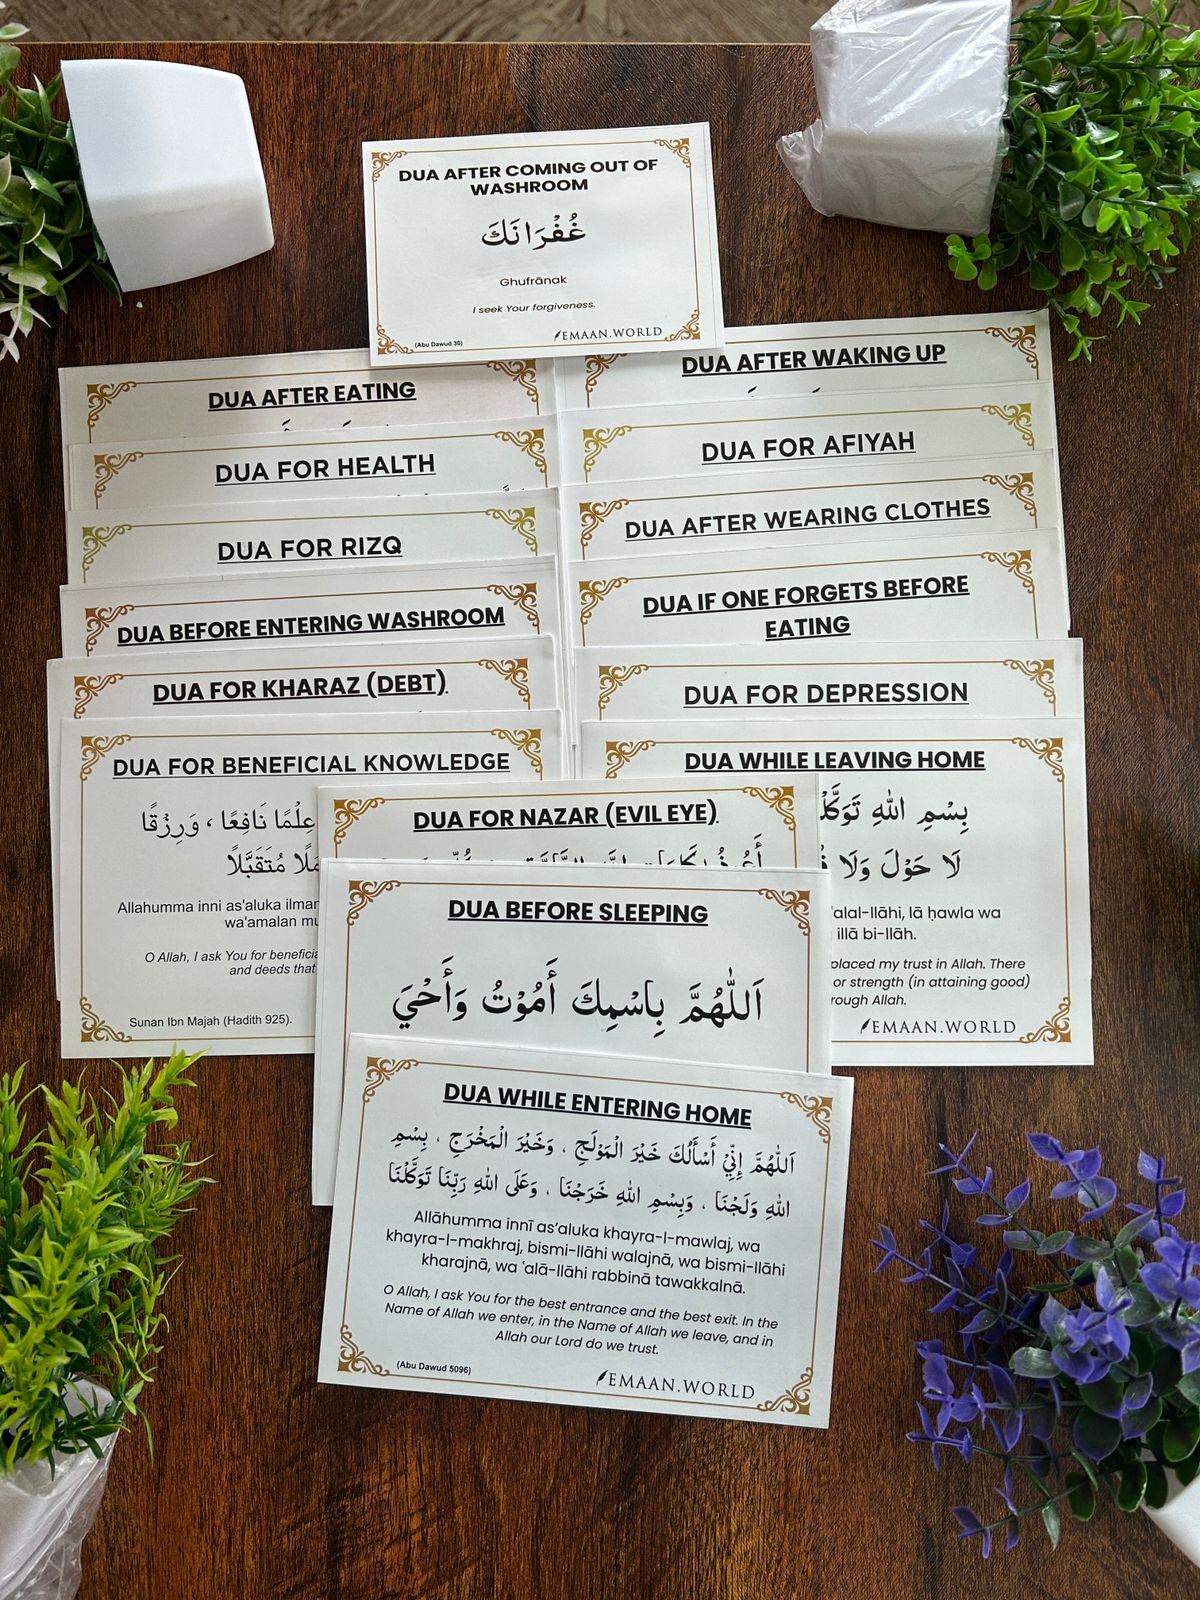 DUA AFTER COMING OUT OF
WASHROOM
غُفْرَانَكَ
Ghufrānak
I seek Your forgiveness.
(Abu Dawud 30)
EMAAN.WORLD
DUA AFTER EATING
DUA FOR HEALTH
DUA FOR RIZQ
DUA BEFORE ENTERING WASHROOM
DUA FOR KHARAZ (DEBT)
DUA FOR BENEFICIAL KNOWLEDGE
عِلْمًا نَافِعًا ، وَرِزْقًا
مُتَقَبَّلًا
Allahumma inni as'aluka
wa'amalan
O Allah, I ask You for
and deeds that
Sunan Ibn Majah (Hadith 925).
DUA AFTER WAKING UP
DUA FOR AFIYAH
DUA AFTER WEARING CLOTHES
DUA IF ONE FORGETS BEFORE
EATING
DUA FOR DEPRESSION
DUA WHILE LEAVING HOME
بِسْمِ اللهِ
لَا حَوْلَ وَلَا
'alal-llāhi, lā ḥawla wa
illā bi-llāh.
placed my trust in Allah. There
or strength (in attaining good)
Allah.
EMAAN.WORLD
DUA FOR NAZAR (EVIL EYE)
DUA BEFORE SLEEPING
اَللّٰهُمَّ بِاسْمِكَ أَمُوْتُ وَأَحْيَ
DUA WHILE ENTERING HOME
اَللّٰهُمَّ إِنِّيْ أَسْأَلُكَ خَيْرَ الْمَوْلَجِ ، وَخَيْرَ الْمَخْرَجِ ، بِسْمِ
اللهِ وَلَجْنَا ، وَبِسْمِ اللهِ خَرَجْنَا ، وَعَلَى اللهِ رَبِّنَا تَوَكَّلْنَا
Allāhumma innī as’aluka khayra-l-mawlaj, wa
khayra-l-makhraj, bismi-llāhi walajnā, wa bismi-llāhi
kharajnā, wa ‘alā-llāhi rabbinā tawakkalnā.
O Allah, I ask You for the best entrance and the best exit. In the
Name of Allah we enter, in the Name of Allah we leave, and in
Allah our Lord do we trust.
(Abu Dawud 5096)
EMAAN.WORLD